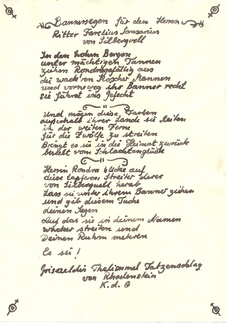 Bannersegen für den Herren
Ritter Sansarius
von Silberquell
In den hohen Bergen
unter mächtigen Tannen
ziehen Rondragefällig aus
die wack'ren Koscher Mannen
und vorneweg ihr Banner recht
sie führet ins Gefecht
Und mögen diese Farben
außerhalb ihrer Lande sie leiten
in der weiten Ferne
für die Zwölfe zu streiten
Bringt es sie in die Heimat zurück
beseelt vom Schlachtenglück
Herrin Rondra blicke auf
diese tapferen Streiter
von Silberquell herab
Lass sie unter ihrem Banner ziehen
und gib diesem Tuche
deinen Segen
auf das sie in deinem Namen
wacker streiten und
Deinen Ruhm mehren
Es sei!
Thalionmel Tatzenschlag
von Rhodenstein
K.d.G